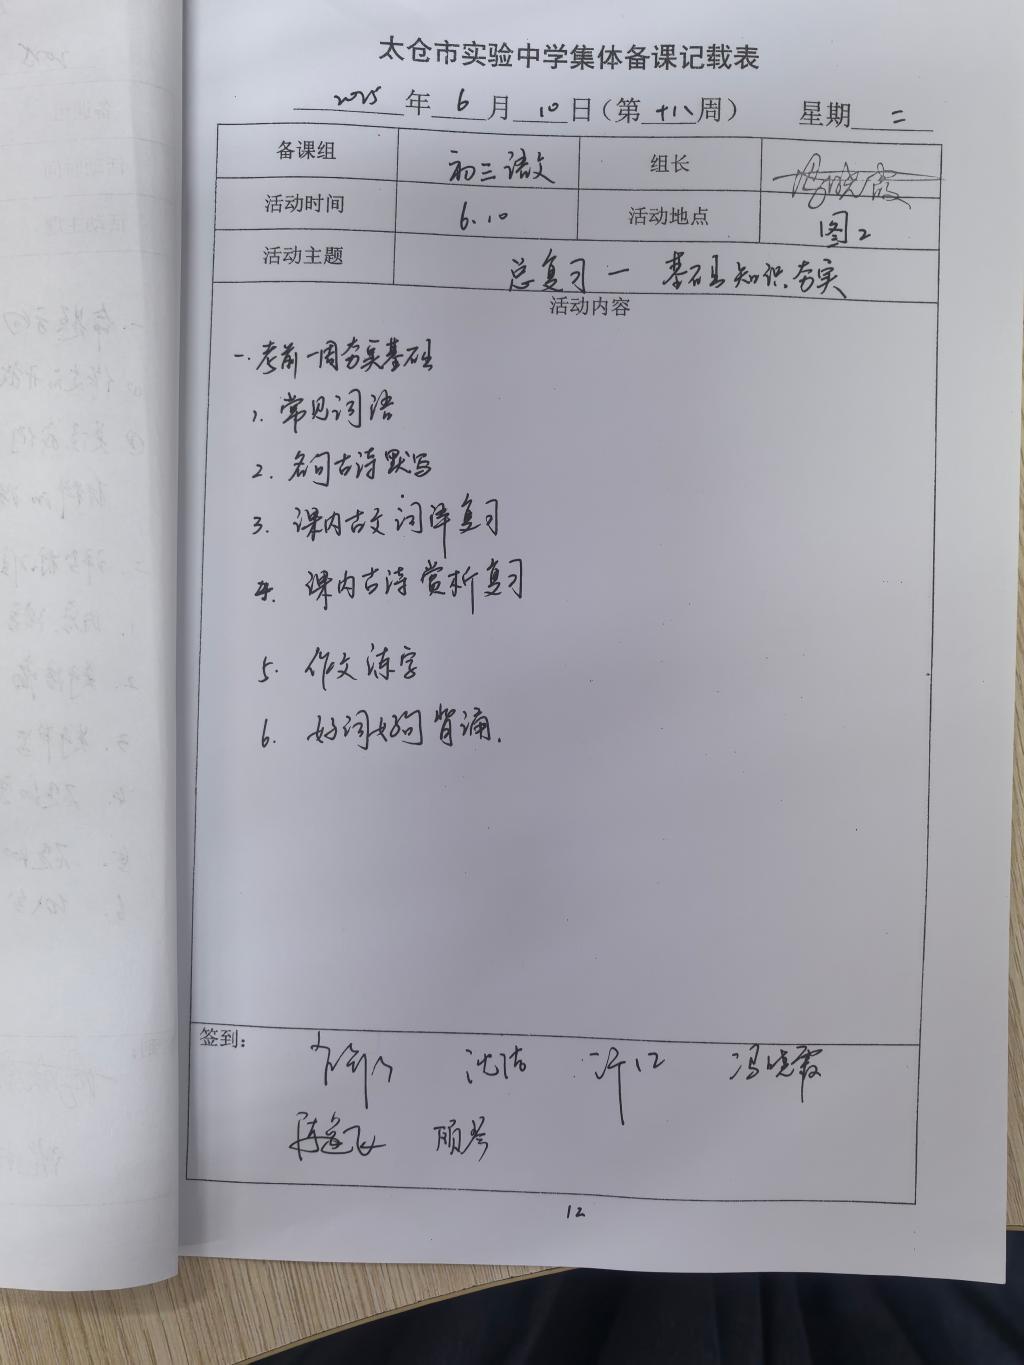 太仓市实验中学集体备课记载表
2025年6月10日（第十八周） 星期二
备课组 初三语文 组长 冯晓霞
活动时间 6.10 活动地点 图2
活动主题 总复习一 基础知识夯实
活动内容
一.考前一周夯实基础
1. 常见词语
2. 名句古诗默写
3. 课内古文词译复习
4. 课内古诗赏析复习
5. 作文练字
6. 好词好句背诵.
签到：
沈洁 冯晓霞
12